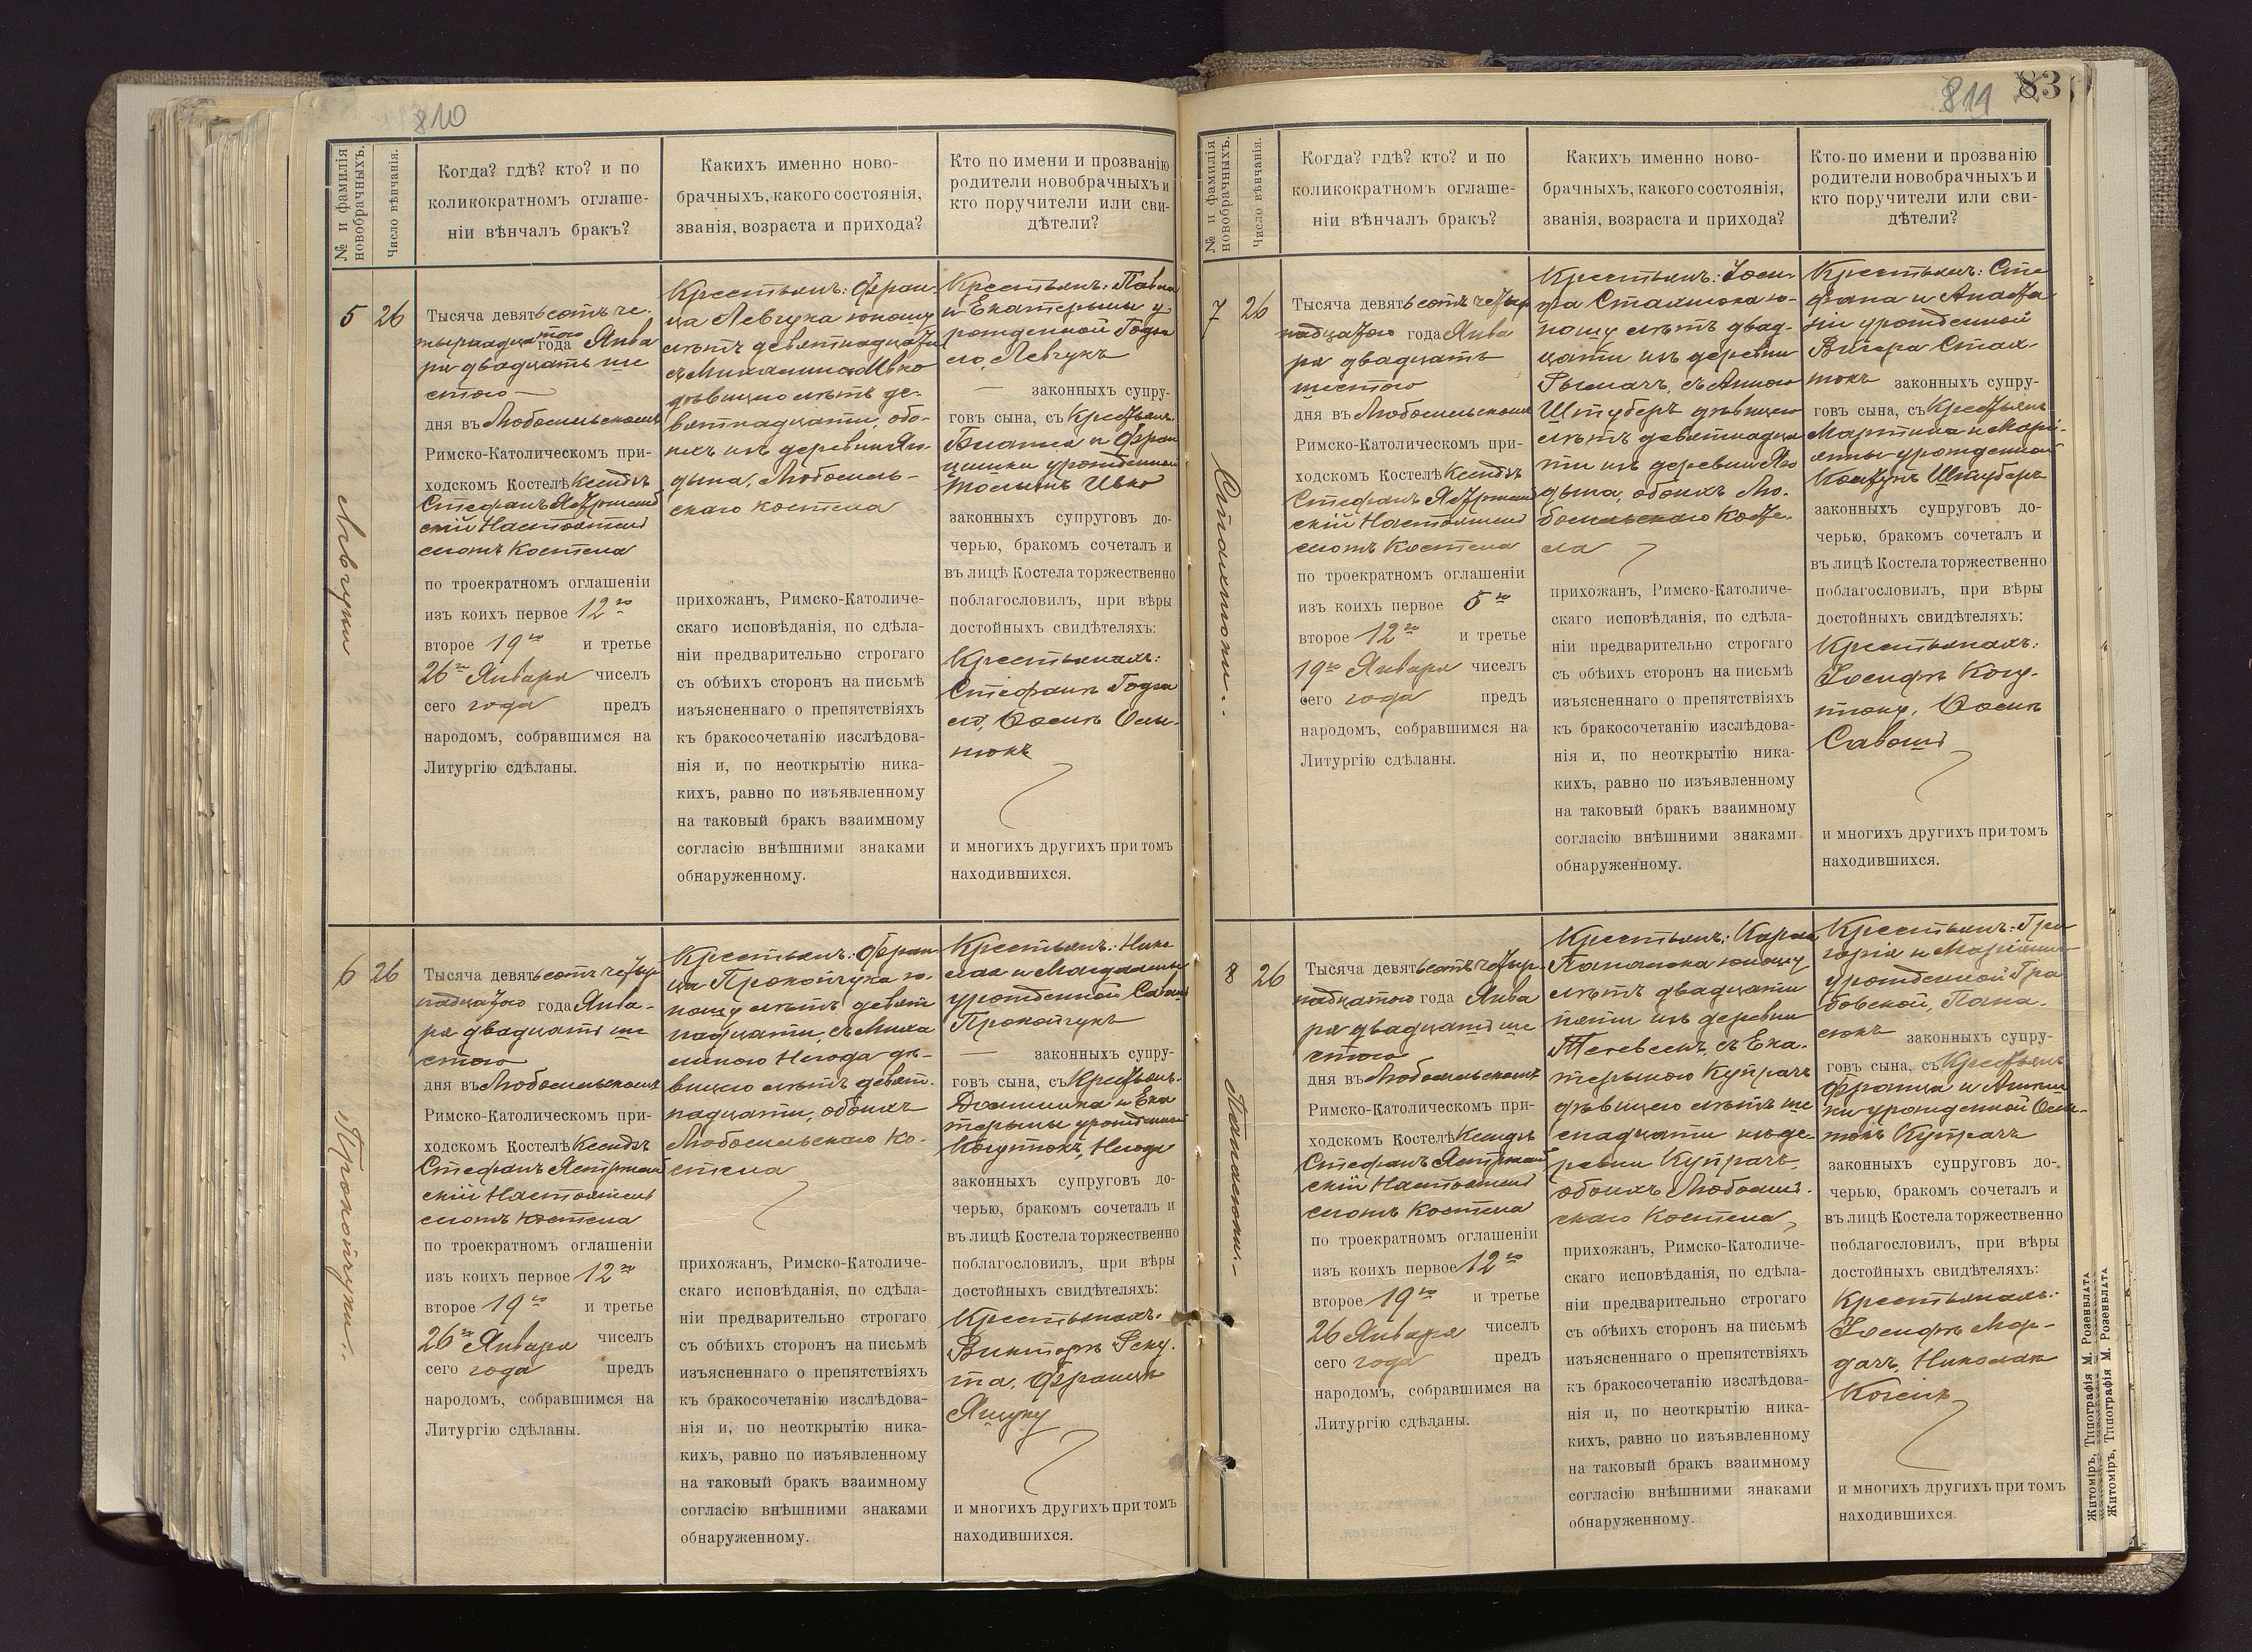 810
№ и фамилія новобрачныхъ.
Число вѣнчанія.
Когда? гдѣ? кто? и по
коликократномъ оглаше-
ніи вѣнчалъ бракъ?
Какихъ именно ново-
брачныхъ, какого состоянія,
званія, возраста и прихода?
Кто по имени и прозванію
родители новобрачныхъ и
кто поручители или сви-
дѣтели?
5
26
Левчуки
Тысяча девятьсотъ че-
тырнадцатого года Янва
ря двадцать ше
стого
дня въ Любомльскомъ
Римско-Католическомъ при-
ходскомъ Костелѣ Ксендзъ
Стефанъ Ястржемб
скій Настоятель
сего костела
по троекратномъ оглашеніи
изъ коихъ первое 12го
второе 19го и третье
26го Января чиселъ
сего года предъ
народомъ, собравшимся на
Литургію сдѣланы.
Крестьянъ: Фран-
ца Левчука юношу
лѣтъ девятнадцати
съ Михалиною Ивко
дѣвицею лѣтъ де-
вятнадцати, обо-
ихъ изъ деревни Яго-
дына, Любомль-
скаго костела
прихожанъ, Римско-Католиче-
скаго исповѣданія, по сдѣла-
ніи предварительно строгаго
съ обѣихъ сторонъ на письмѣ
изъясненнаго о препятствіяхъ
къ бракосочетанію изслѣдова-
нія и, по неоткрытію ника-
кихъ, равно по изъявленному
на таковый бракъ взаимному
согласію внѣшними знаками
обнаруженному.
Крестьянъ: Павла
и Екатерины у
рожденной
Левчукъ
законныхъ супру-
говъ сына, съ Крестьянъ
и Фран
цишки урожденной
Ивко
законныхъ супруговъ до-
черью, бракомъ сочеталъ и
въ лицѣ Костела торжественно
поблагословилъ, при вѣры
достойныхъ свидѣтеляхъ:
Крестьянахъ:
Стефанъ
тюкъ
и многихъ другихъ при томъ
находившихся.
6
26
Прокопчуки
Тысяча девятьсотъ четыр
надцатого года Янва-
ря двадцать ше
стого
дня въ Любомльскомъ
Римско-Католическомъ при-
ходскомъ Костелѣ Ксендзъ
Стефанъ Ястржемб
скій Настоятель
сего костела
по троекратномъ оглашеніи
изъ коихъ первое 12го
второе 19го и третье
26го Января чиселъ
сего года предъ
народомъ, собравшимся на
Литургію сдѣланы.
Крестьянъ: Фран
ца Прокопчука ю-
ношу лѣтъ девят
надцати, съ Миха
линою Негода дѣ-
вицею лѣтъ девят-
надцати, обоихъ
Любомльскаго ко-
стела
прихожанъ, Римско-Католиче-
скаго исповѣданія, по сдѣла-
ніи предварительно строгаго
съ обѣихъ сторонъ на письмѣ
изъясненнаго о препятствіяхъ
къ бракосочетанію изслѣдова-
нія и, по неоткрытію ника-
кихъ, равно по изъявленному
на таковый бракъ взаимному
согласію внѣшними знаками
обнаруженному.
Крестьянъ: Нико
лая и Магдалены
урожденной
Прокопчукъ
законныхъ супру-
говъ сына, съ Крестьянъ
Доминика и Ека
терины урожденной
Когутюкъ, Негода
законныхъ супруговъ до-
черью, бракомъ сочеталъ и
въ лицѣ Костела торжественно
поблагословилъ, при вѣры
достойныхъ свидѣтеляхъ:
Крестьянахъ:
Викторъ
Францъ
Ящуку
и многихъ другихъ при томъ
находившихся.
811
83
№ и фамилія новобрачныхъ.
Число вѣнчанія.
Когда? гдѣ? кто? и по
коликократномъ оглаше-
ніи вѣнчалъ бракъ?
Какихъ именно ново-
брачныхъ, какого состоянія,
званія, возраста и прихода?
Кто по имени и прозванію
родители новобрачныхъ и
кто поручители или сви-
дѣтели?
7
26
Стахнюки
Тысяча девятьсотъ четыр
надцатого года Янва
ря двадцать
шестого
дня въ Любомльскомъ
Римско-Католическомъ при-
ходскомъ Костелѣ Ксендзъ
Стефанъ Ястржемб
скій Настоятель
сего костела
по троекратномъ оглашеніи
изъ коихъ первое 5го
второе 12го и третье
19го Января чиселъ
сего года предъ
народомъ, собравшимся на
Литургію сдѣланы.
Крестьянъ: Іоси-
фа Стахнюка ю-
ношу лѣтъ двад-
цати изъ деревни
Рымачъ, съ Анною
Штуберъ дѣвицею
лѣтъ девятнадца
ти изъ деревни Яго
дына, обоихъ Лю-
бомльскаго косте-
ла
прихожанъ, Римско-Католиче-
скаго исповѣданія, по сдѣла-
ніи предварительно строгаго
съ обѣихъ сторонъ на письмѣ
изъясненнаго о препятствіяхъ
къ бракосочетанію изслѣдова-
нія и, по неоткрытію ника-
кихъ, равно по изъявленному
на таковый бракъ взаимному
согласію внѣшними знаками
обнаруженному.
Крестьянъ: Сте
фана и Анаста
зіи урожденной
Вигера Стах-
нюкъ законныхъ супру-
говъ сына, съ Крестьянъ
Мартина и Марі-
анны урожденной
Штуберъ
законныхъ супруговъ до-
черью, бракомъ сочеталъ и
въ лицѣ Костела торжественно
поблагословилъ, при вѣры
достойныхъ свидѣтеляхъ:
Крестьянахъ:
Іосифъ Когу-
тюку,
и многихъ другихъ при томъ
находившихся.
8
26
Панасюки
Тысяча девятьсотъ четыр-
надцатого года Янва
ря двадцать ше
стого
дня въ Любомльскомъ
Римско-Католическомъ при-
ходскомъ Костелѣ Ксендзъ
Стефанъ Ястржемб
скій Настоятель
сего костела
по троекратномъ оглашеніи
изъ коихъ первое 12го
второе 19го и третье
26 Января чиселъ
сего года предъ
народомъ, собравшимся на
Литургію сдѣланы.
Крестьянъ: Карла
Панасюка юношу
лѣтъ двадцати
пяти изъ деревни
съ Ека-
териною Купрачъ
дѣвицею лѣтъ ше
снадцати изъ де-
ревни Купрачъ,
обоихъ Любомль-
скаго костела,
прихожанъ, Римско-Католиче-
скаго исповѣданія, по сдѣла-
ніи предварительно строгаго
съ обѣихъ сторонъ на письмѣ
изъясненнаго о препятствіяхъ
къ бракосочетанію изслѣдова-
нія и, по неоткрытію ника-
кихъ, равно по изъявленному
на таковый бракъ взаимному
согласію внѣшними знаками
обнаруженному.
Крестьянъ: Гри
горія и Маріанны
урожденной Гра
бовской, Пана-
сюкъ законныхъ супру-
говъ сына, съ Крестьянъ
Франца и
урожденной
Купрачъ
законныхъ супруговъ до-
черью, бракомъ сочеталъ и
въ лицѣ Костела торжественно
поблагословилъ, при вѣры
достойныхъ свидѣтеляхъ:
Крестьянахъ:
Іосифъ Мор-
дачъ, Николая
и многихъ другихъ при томъ
находившихся.
Житоміръ, Типографія М. Розенблата
Житоміръ, Типографія М. Розенблата